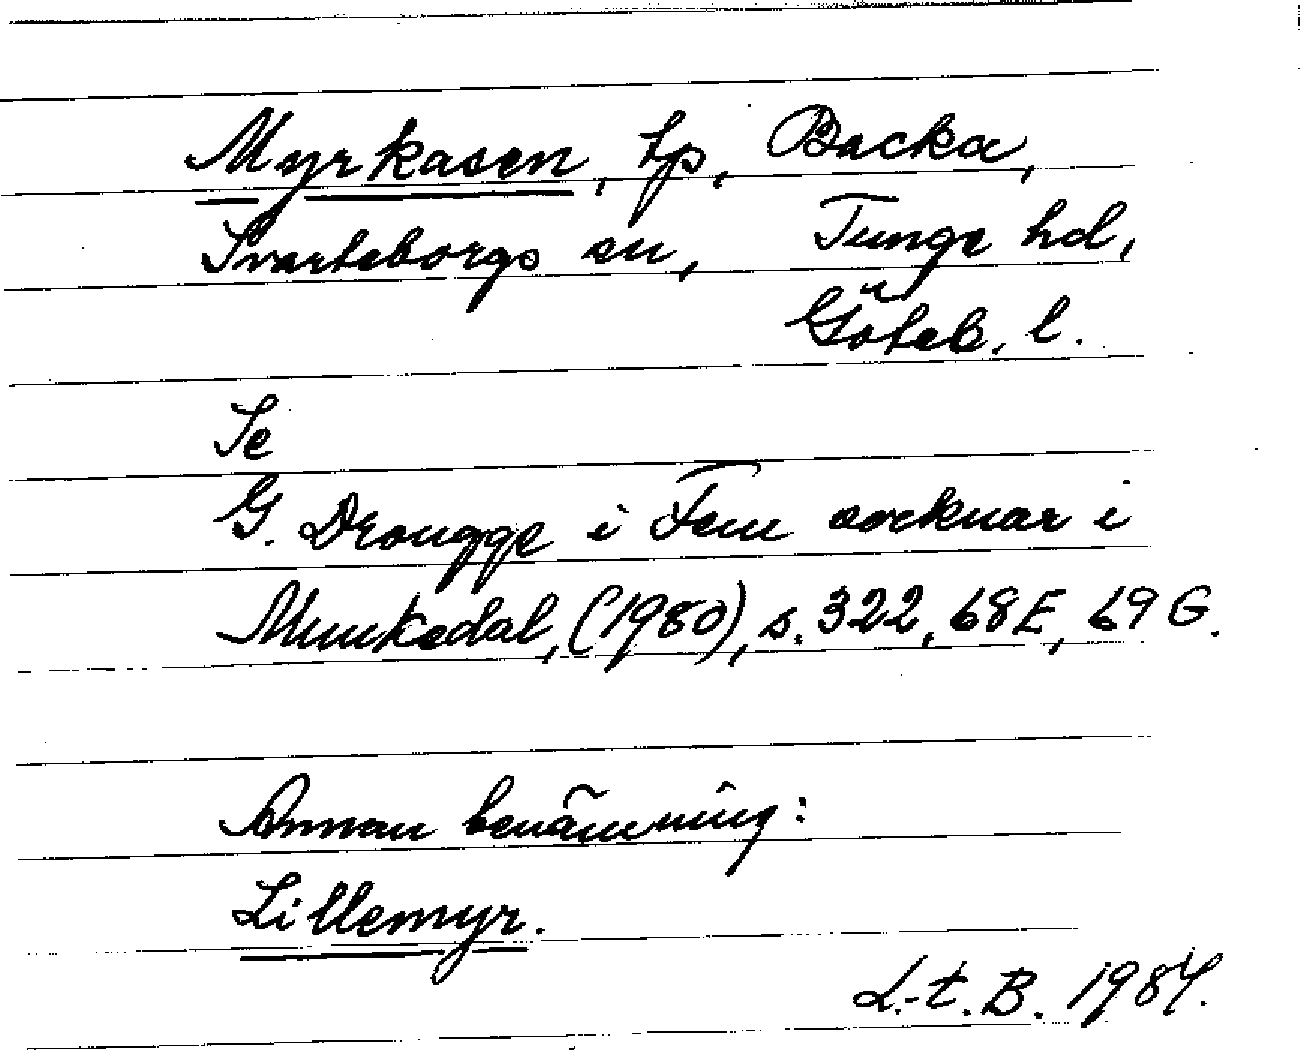 Myrkasen, tp, Backa,
Svarteborgs sn, Tunge hd,
Göteb. l.
Se
G. Drougge i Fem socknar i
Munkedal, (1980), s. 322, 68E, 69G.
Annan benämning:
Lillemyr.
L.-t. B. 1984.